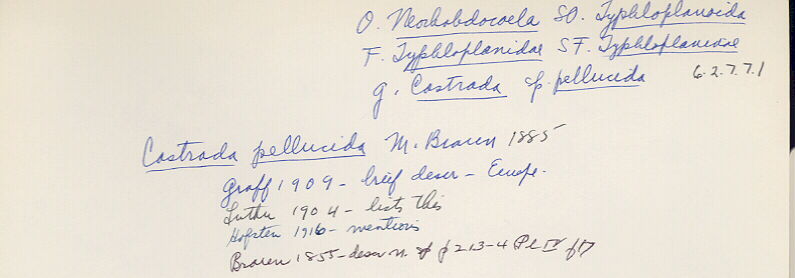 O. Neorhabdocoela SO. Typhloplanoida
F. Typhloplanidae SF. Typhloplaninae
g. Castrada sp. pellucida 6.2.7.7.1
Castrada pellucida M. Braun 1885
Graff 1909 - brief descr - Europe.
Luther 1904 - lists this
Hofsten 1916 - mentions
Braun 1855 - descr n. sp p 213-4 Pl IV